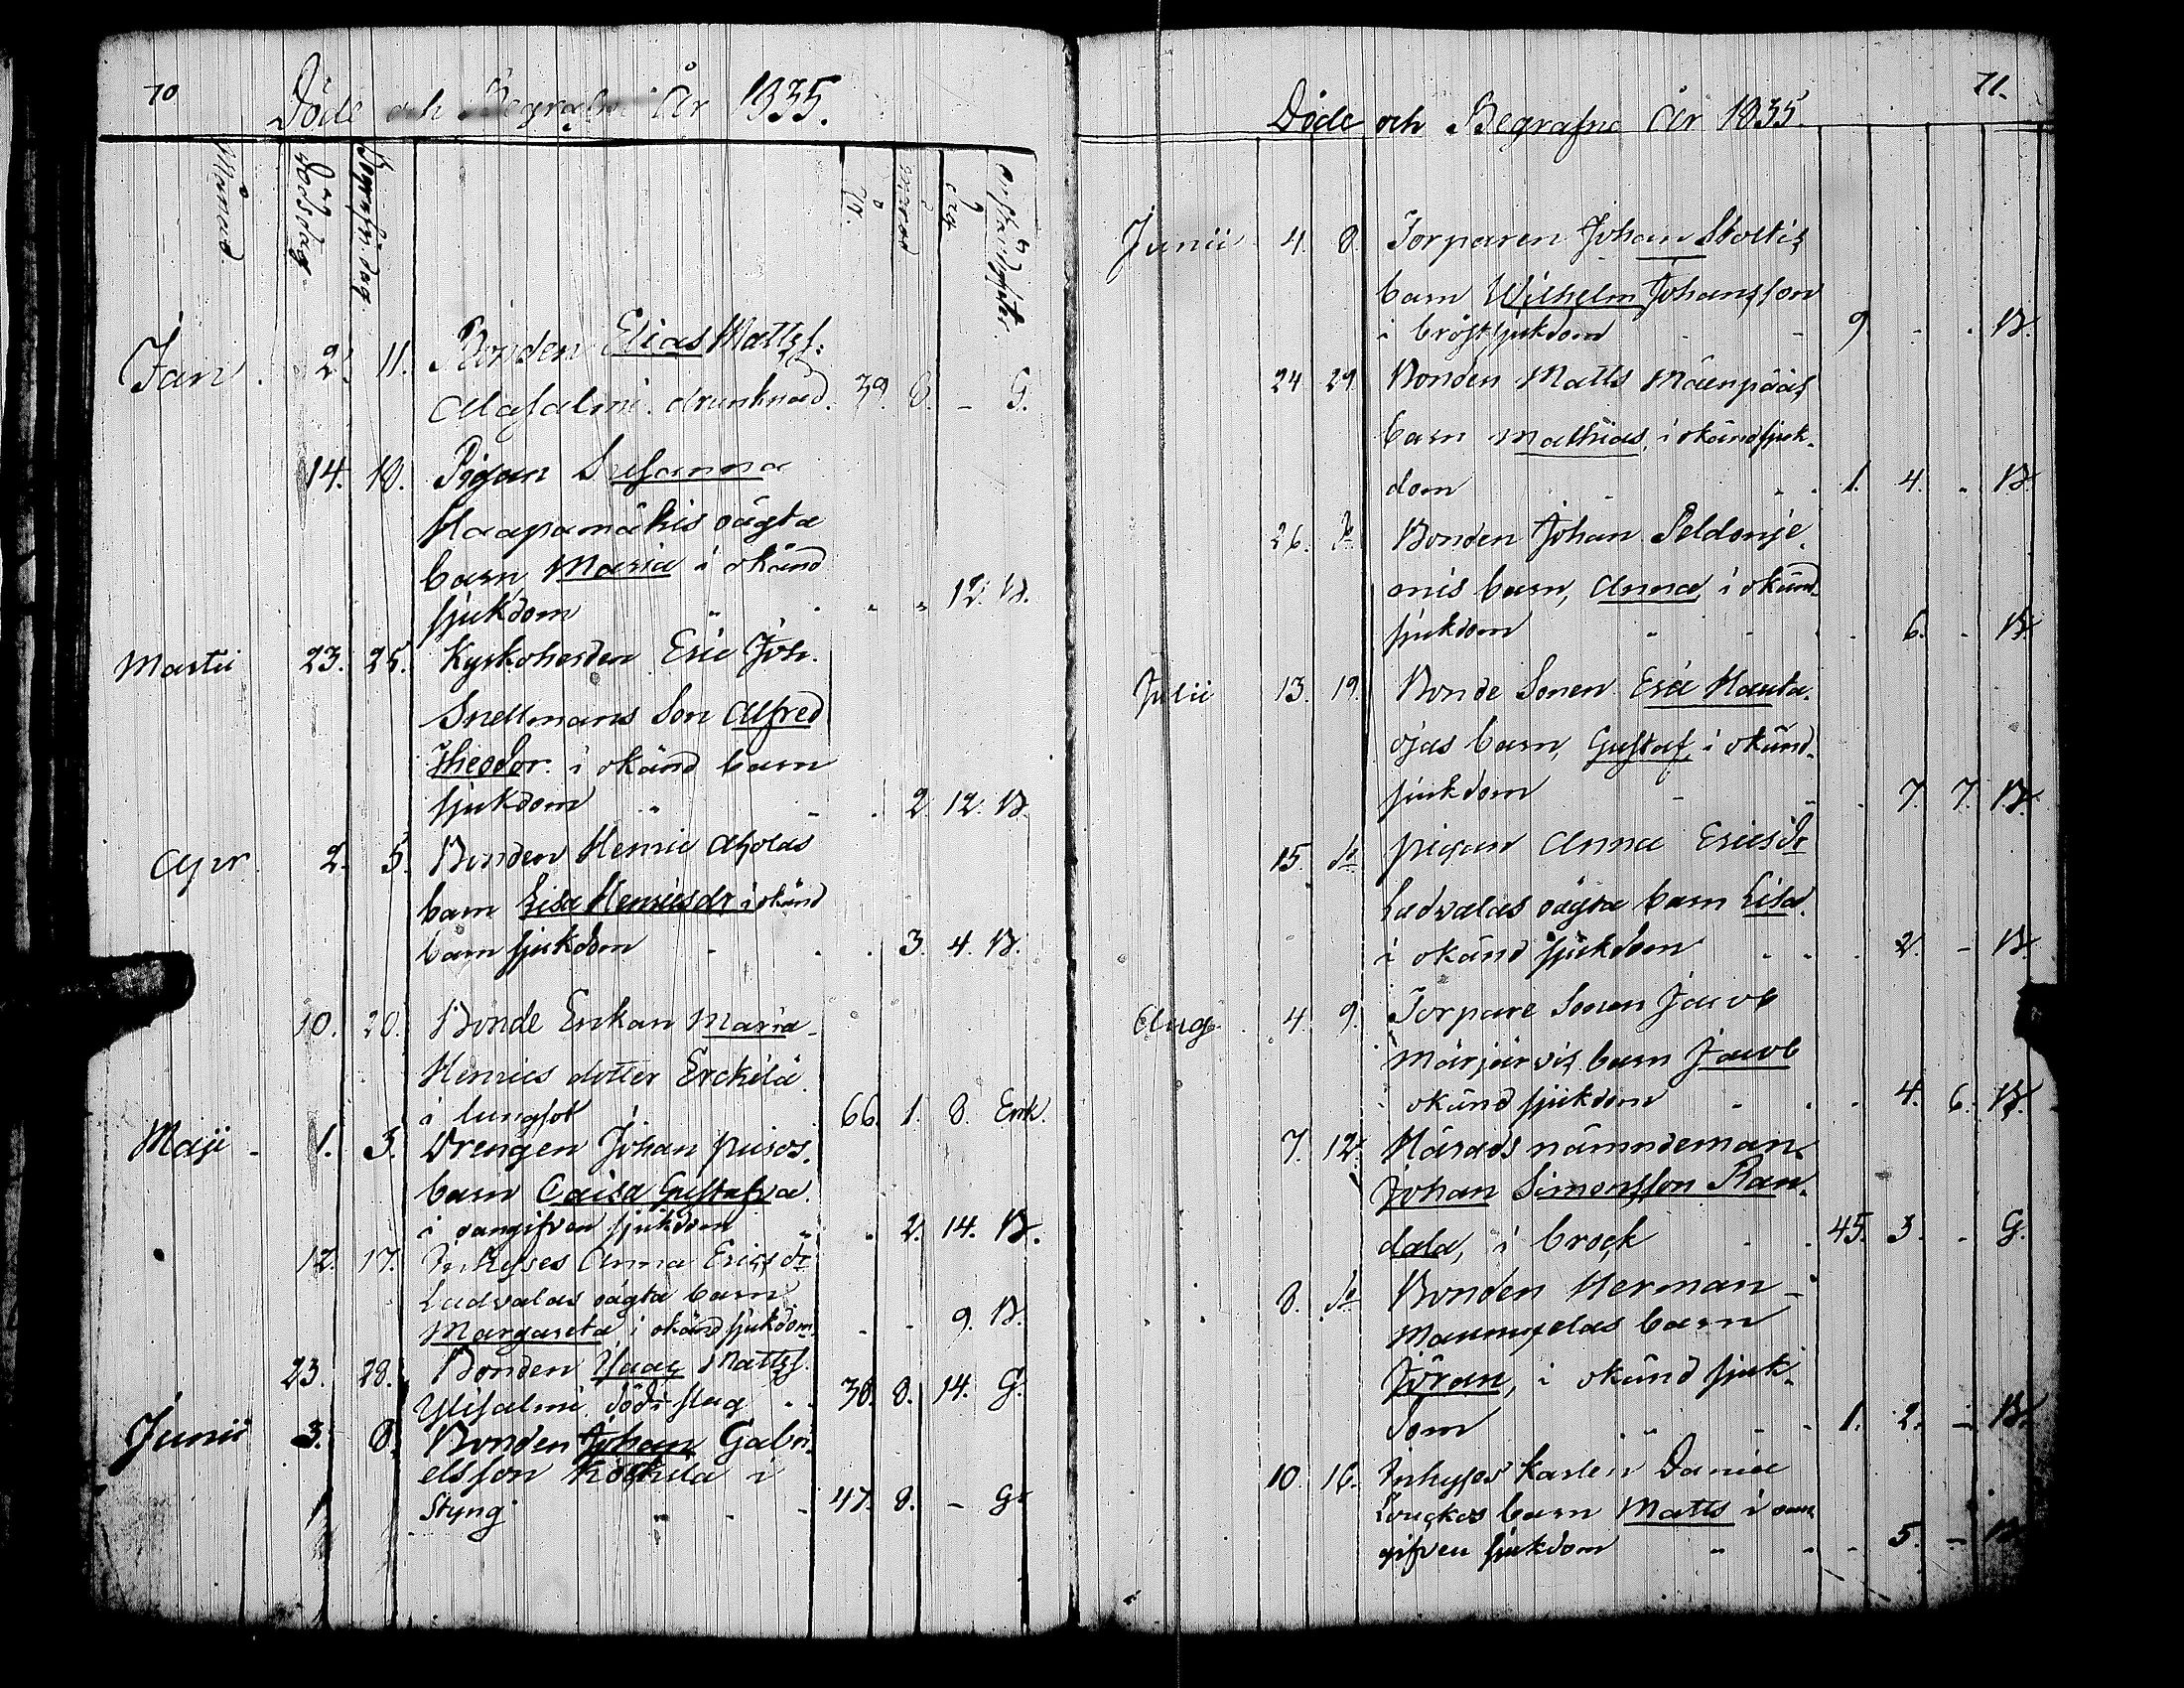 70
Döde och Begrafne År 1835.
Månad Dödsdag Begrafn. dag År Månad Dag
Jan. 2. 11. Bonden Elias Mattss.
Alasalmi. drunknad. 39. 8. - G.
14. 18. Pigan Susanna
Haapamäkis oägta
barn Maria i okänd
sjukdom " . " " 12. B.
Martii 23. 25. Kyrkoherden Eric Joh.
Snellmans Son Alfred
Theodor. i okänd barn
sjukdom " - . 2. 12. B.
Apr. 2. 5. Bonden Henric Aholas
barn Lisa Henricsdr i okänd
barn sjukdom - . . 3. 4. B.
10. 20. Bonde Enkan Maria
Henrics dotter Erckilä
i lungsot 66. 1. 8. Enk.
Maji - 1. 3. Drengen Johan Puisos
barn Caisa Gustafva
i oangifven sjukdom " . 2. 14. B.
12. 17. Inhyses Anna Ericsdr
Ladvalas oägta barn
Margareta i okänd sjukdom - - 9. B.
23. 28. Bonden Isaac Mattss.
Ylisalmi, Död i slag . . 38. 8. 14. G.
Junii 3. 8. Bonden Johan Gabri
elsson Koskela i
Styng " - - 47. 8. - G.
71.
Döde och Begrafne År 1835.
Junii 4. 8. Torparen Johan Stoltis
barn Wilhelm Johansson
i bröstsjukdom - - 9. - . B.
24. 29. Bonden Matts Mäenpääs
barn Mathias, i okänd sjuk-
dom - . . 1. 4. . B.
26. do Bonden Johan Peldonie-
mis barn, Anna, i okänd
sjukdom " - . . 6. . B.
Julii 13. 19. Bonde Sonen Eric Hauta-
ojas barn, Gustaf, i okänd
sjukdom - " . 7. 7. B.
15. do pigan Anna Ericsdr
Ladvalas oägta barn Lisa
i okänd sjukdom . . . 2. - B.
Aug. 4. 9. Torpare Sonen Jacob
Märjärvis barn Jacob
i okänd sjukdom - . . 4. 6. B.
7. 12. Härads nämndeman
Johan Simonsson Ran-
dala, i bråck - . 45. 3. . G.
8. do Bonden Herman
barn
Jöran, i okänd sjuk-
dom " - . 1. 2. - B.
10. 16. Inhyses Karlen Daniel
Louckos barn Matts i oan-
gifven sjukdom " . - 5. - B.